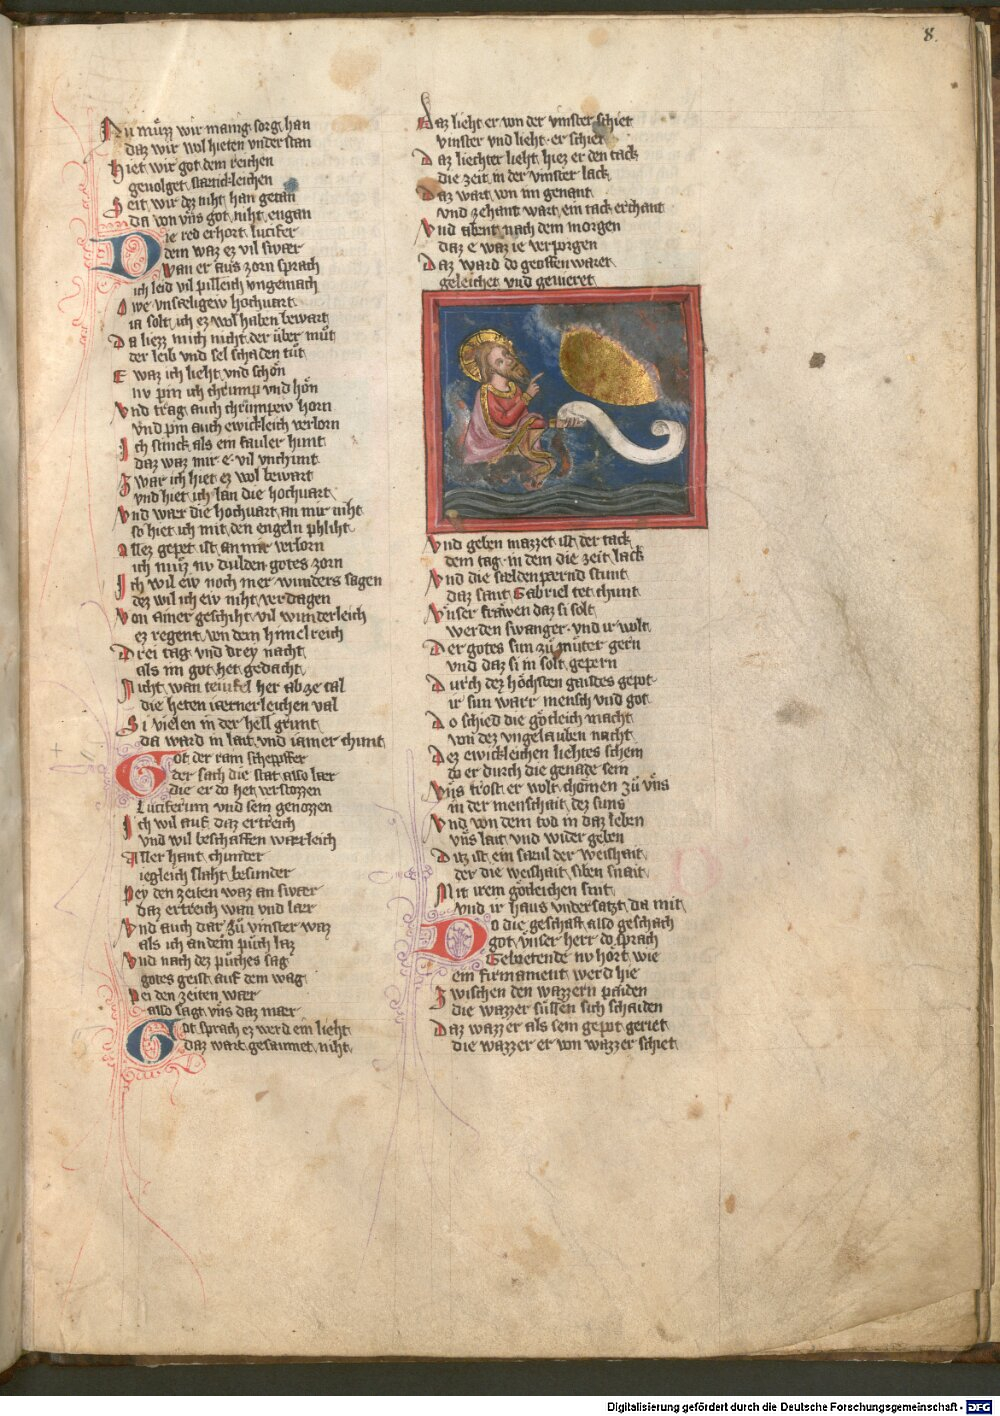 8.
Nu muͤzz wir manig sorg han
daz wir wol hieten vnder stan
Hiet wir got dem reichen
geuolget stætichleichen
Seit wir dez niht han getan
da von vns got niht engan
Die red erhort lucifer
dem waz ez vil swær
Wan er aus zorn sprach
ich leid vil pilleich vngemach
Owe vnsæligew hochuart
ia solt ich ez wol haben bewart
Da liezz mich nicht der über muͦt
der leib vnd sel schaden tuͦt
E waz ich lieht vnd schoͤn
nv pin ich chrump vnd hoͤn
Vnd trag auch chrumpew horn
Vnd pin auch ewickleich verlorn
Ich stinck als ein fauler hunt
daz waz mir e vil vnchunt
Zwar ich hiet ez wol bewart
vnd hiet ich lan die hochuart
Vnd wær die hochuart an mir niht
so hiet ich mit den engeln phliht
Allez gepet ist an mir verlorn
ich muz nv dulden gotes zorn
Ich wil ew noch mer wunders sagen
dez wil ich ew niht verdagen
Von ainer geschiht vil wunderleich
ez regent von dem himelreich
Drei tag vnd drey nacht
als im got het gedacht
Nicht wan teiufel her ab ze tal
die heten iæmerleichen val
Si vielen in der hell grunt
da ward in lait vnd iamer chunt
Got der rain schepffer
der sach die stat also lær
die er do het verstozzen
Luciferum vnd sein genozzen
Ich wil auf daz ertreich
vnd wil beschaffen wærleich
Aller hant chunder
iegleich slaht besunder
Pey den zeiten waz an swær
daz ertreich wan vnd lær
Vnd auch dar zuͦ vinster waz
als ich an dem puͦch laz
Vnd nach dez puͦches sag
gotes geist auf dem wag
Bei den zeiten wær
also sagt vns daz mær
Got sprach ez werd ein lieht
daz wart gesaumet niht
Daz lieht er von der vinster schiet
vinster vnd lieht er schiet
Daz liechter lieht hiez er den tack
die zeit in der vinster lack
Daz wart von im genant
vnd zehant wart ein tack erchant
Vnd abent nach dem morgen
daz e waz ie verporgen
Daz ward do geoffenwaret
geleichet vnd geuieret
Vnd geben mazzet ist der tack
dem tag in dem die zeit lack
Vnd die sældenpærnd stunt
daz sant Gabriel tet chunt
Vnser frawen daz si solt
werden swanger vnd ir wolt
Der gotes sun zuͦ muͦter gern
vnd daz si in solt gepern
Durch dez hoͤchsten gaistes gepot
ir sun warr mensch vnd got
Do schied die goͤtleich macht
von dez vngelauben nacht
Dez ewickleichen liehtes schein
do er durch die genade sein
Vns trost er wolt chomen zuͦ vns
in der menschait dez suns
Vnd von dem tod in daz leben
vns lait vnd wider geben
Ditz ist ein saeul der weishait
der die weishait siben snait
Mit irem goͤtleichen snit
vnd ir haus vndersatzt da mit
Do die geschaft also geschach
got vnser herr do sprach
Gebietende nv hoͤrt wie
ein firmament werd hie
Zwischen den wazzern paiden
die wazzer suͤllen sich schaiden
Daz wazzer als sein gepot geriet
die wazzer er von wazzer schiet
Digitalisierung gefördert durch die Deutsche Forschungsgemeinschaft - DFG